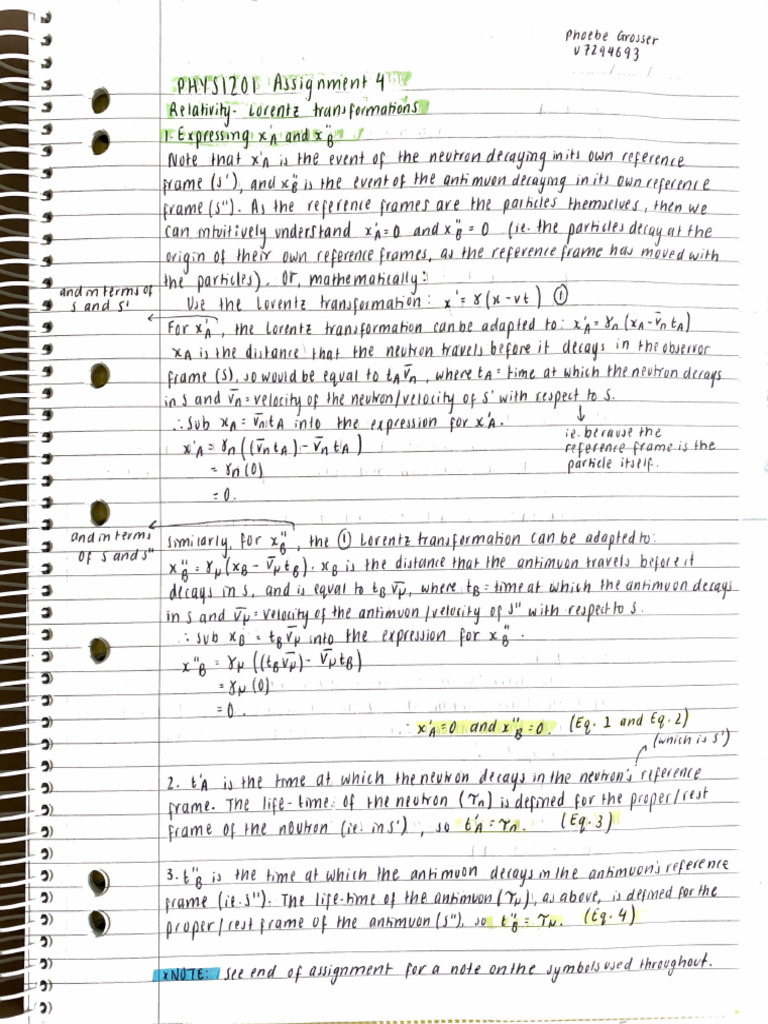 Phoebe Grosser
u7294693
PHYS1201 Assignment 4
Relativity- Lorentz transformations
1. Expressing x'A and x''B
Note that x'A is the event of the neutron decaying in its own reference
frame (S'), and x''B is the event of the antimuon decaying in its own reference
frame (S''). As the reference frames are the particles themselves, then we
can intuitively understand x'A=0 and x''B=0 (ie. the particles decay at the
origin of their own reference frames, as the reference frame has moved with
the particles). Or, mathematically:
and in terms of
S and S'
Use the Lorentz transformation: x' = γ(x-vt) ①
For x'A, the Lorentz transformation can be adapted to: x'A = γn (xA - v̄n tA)
xA is the distance that the neutron travels before it decays in the observor
frame (S), so would be equal to tA v̄n, where tA = time at which the neutron decays
in S and v̄n = velocity of the neutron/velocity of S' with respect to S.
∴ sub xA = v̄n tA into the expression for x'A.
ie. because the
reference frame is the
particle itself.
x'A = γn ((v̄n tA) - v̄n tA)
= γn (0)
= 0.
and in terms
of S and S''
Similarly, for x''B, the ① Lorentz transformation can be adapted to:
x''B = γμ (xB - v̄μ tB). xB is the distance that the antimuon travels before it
decays in S, and is equal to tB v̄μ, where tB = time at which the antimuon decays
in S and v̄μ = velocity of the antimuon/velocity of S'' with respect to S.
∴ sub xB = tB v̄μ into the expression for x''B.
x''B = γμ ((tB v̄μ) - v̄μ tB)
= γμ (0)
= 0.
∴ x'A = 0 and x''B = 0. (Eq. 1 and Eq. 2)
(which is S')
2. t'A is the time at which the neutron decays in the neutron's reference
frame. The life-time of the neutron (τn) is defined for the proper/rest
frame of the neutron (ie: in S'), so t'A = τn. (Eq. 3)
3. t''B is the time at which the antimuon decays in the antimuon's reference
frame (ie. S''). The life-time of the antimuon (τμ), as above, is defined for the
proper/rest frame of the antimuon (S''), so t''B = τμ. (Eq. 4)
*NOTE: See end of assignment for a note on the symbols used throughout.